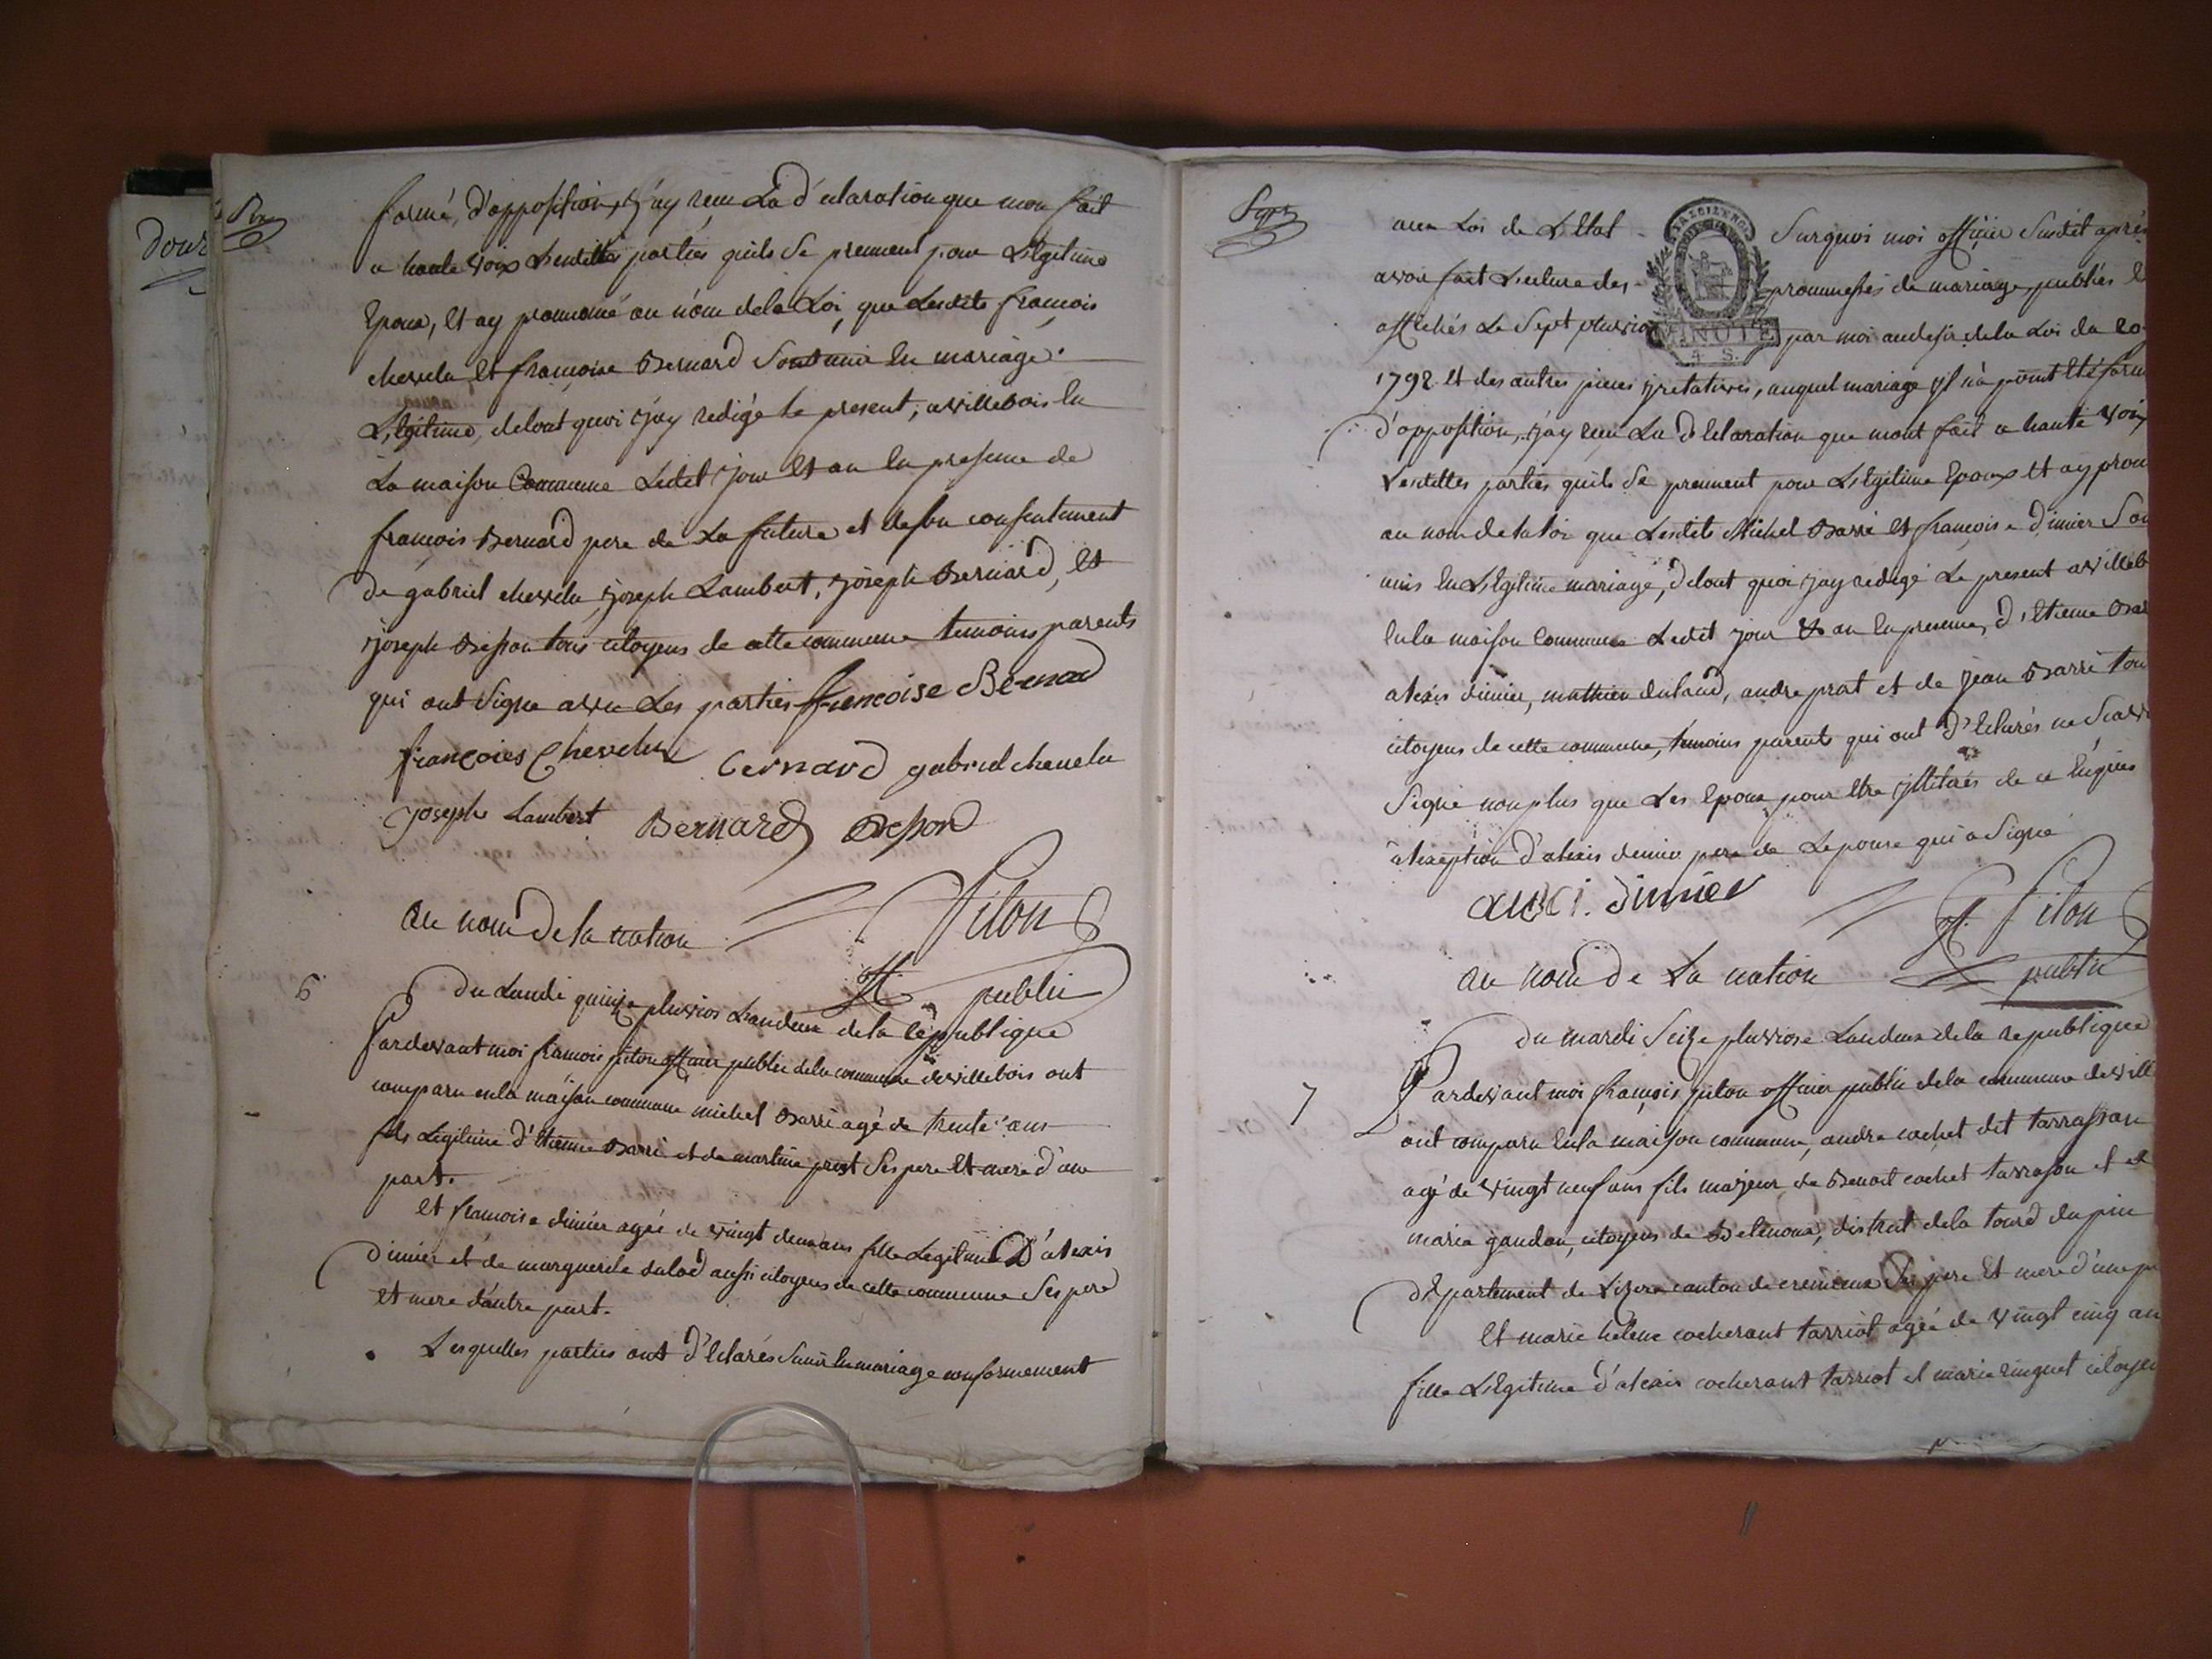 Dour
formé, d'opposition, j'ay recu La d'eclaration que mon fait
a haute voix Lesdittes parties quils Se prennent pour Légitime
Epoux, Et ay prononcé au nóm dela Loi, que Lesdits françois
chevelu Et françoise Bernard Sont unis En mariage.
Légitime, detout quoi j'ay redigé le present, a villebois En
La maison Commune Ledit jour Et an En presence de
françois Bernard pere de La future et deson consentement
De gabriel chevelu, joseph Lambert, joseph Bernard, Et
joseph Besson tous citoyens de cette commune temoins parents
qui ont Signe avec Les parties francoise Bernard
françoies Chevelu Cernard gabriel chevelu
joseph Lambert Bernard Besson
au nom de la nation
Pilon
off. public
6
Du Lundi quinze pluvios Landeux dela republique
Pardevant moi françois pilon officier public dela commune devillebois ont
comparu enla maison commune michel Barri agé de trente ans
fils Légitime d'Etienne Barri et de martine prost Ses pere Et mere d'une
part.
Et françoise dimier agée de vingt deux ans fille Legitime D'alexis
Dimier et de marguerite dulad aussi citoyens de cette commune Ses pere
et mere d'autre part.
Lesquelles parties ont d'Eclarés S'unir En mariage conformement
aux Lois de L'Etat Surquoi moi officier Susdit aprés
avoir fait Lecture des promesses de mariage, publiés
MINUTE
4 S.
affichés Le Sept pluvios par moi audesir dela Loi du 20
1792 Et des autres pieces y relatives, auquel mariage yl n'a point Eté form
d'opposition, j'ay recu La d'Eclaration que mont fait a haute voix
Lesdittes parties quils Se prennent pour Légitime Epoux Et ay pron
au nom de la Loi que Lesdits Michel Barri Et françoise Dimier Son
unis En Légitime mariage, detout quoi j'ay redigé Le present a villeb
Enla maison Commune Ledit jour Et an En presence, d'Etienne Bar
alexis dimier, mathieu dulaud, andre prat et de jean Barri tou
citoyens de cette commune, temoins parents qui ont d'Eclarés ne Scav
Signé non plus que Les Epoux pour Etre yllitérés de ce Enquis
a l'exeption d'alexis dimier pere de Lepouse qui a Signé
Dimier
ff. Pilon
public
au nom de La nation
Du mardi Seize pluviose Landeux dela republique
7
Pardevant moi françois pilon officier public dela commune devill
ont comparu Enla maison commune, andre cochet dit tarrasson
agé de vingt neuf ans fils majeur de Benoit cochet tarrason et
marie gaudon, citoyens de Belmont, district dela tourd du pin
département de Lizere canton de cremieux Ses pere Et mere d'une p
Et marie helene cocherant tarriot agée de vingt cinq an
fille Légitime d'alexis cocherant tarriot et marie ringuet citoyen